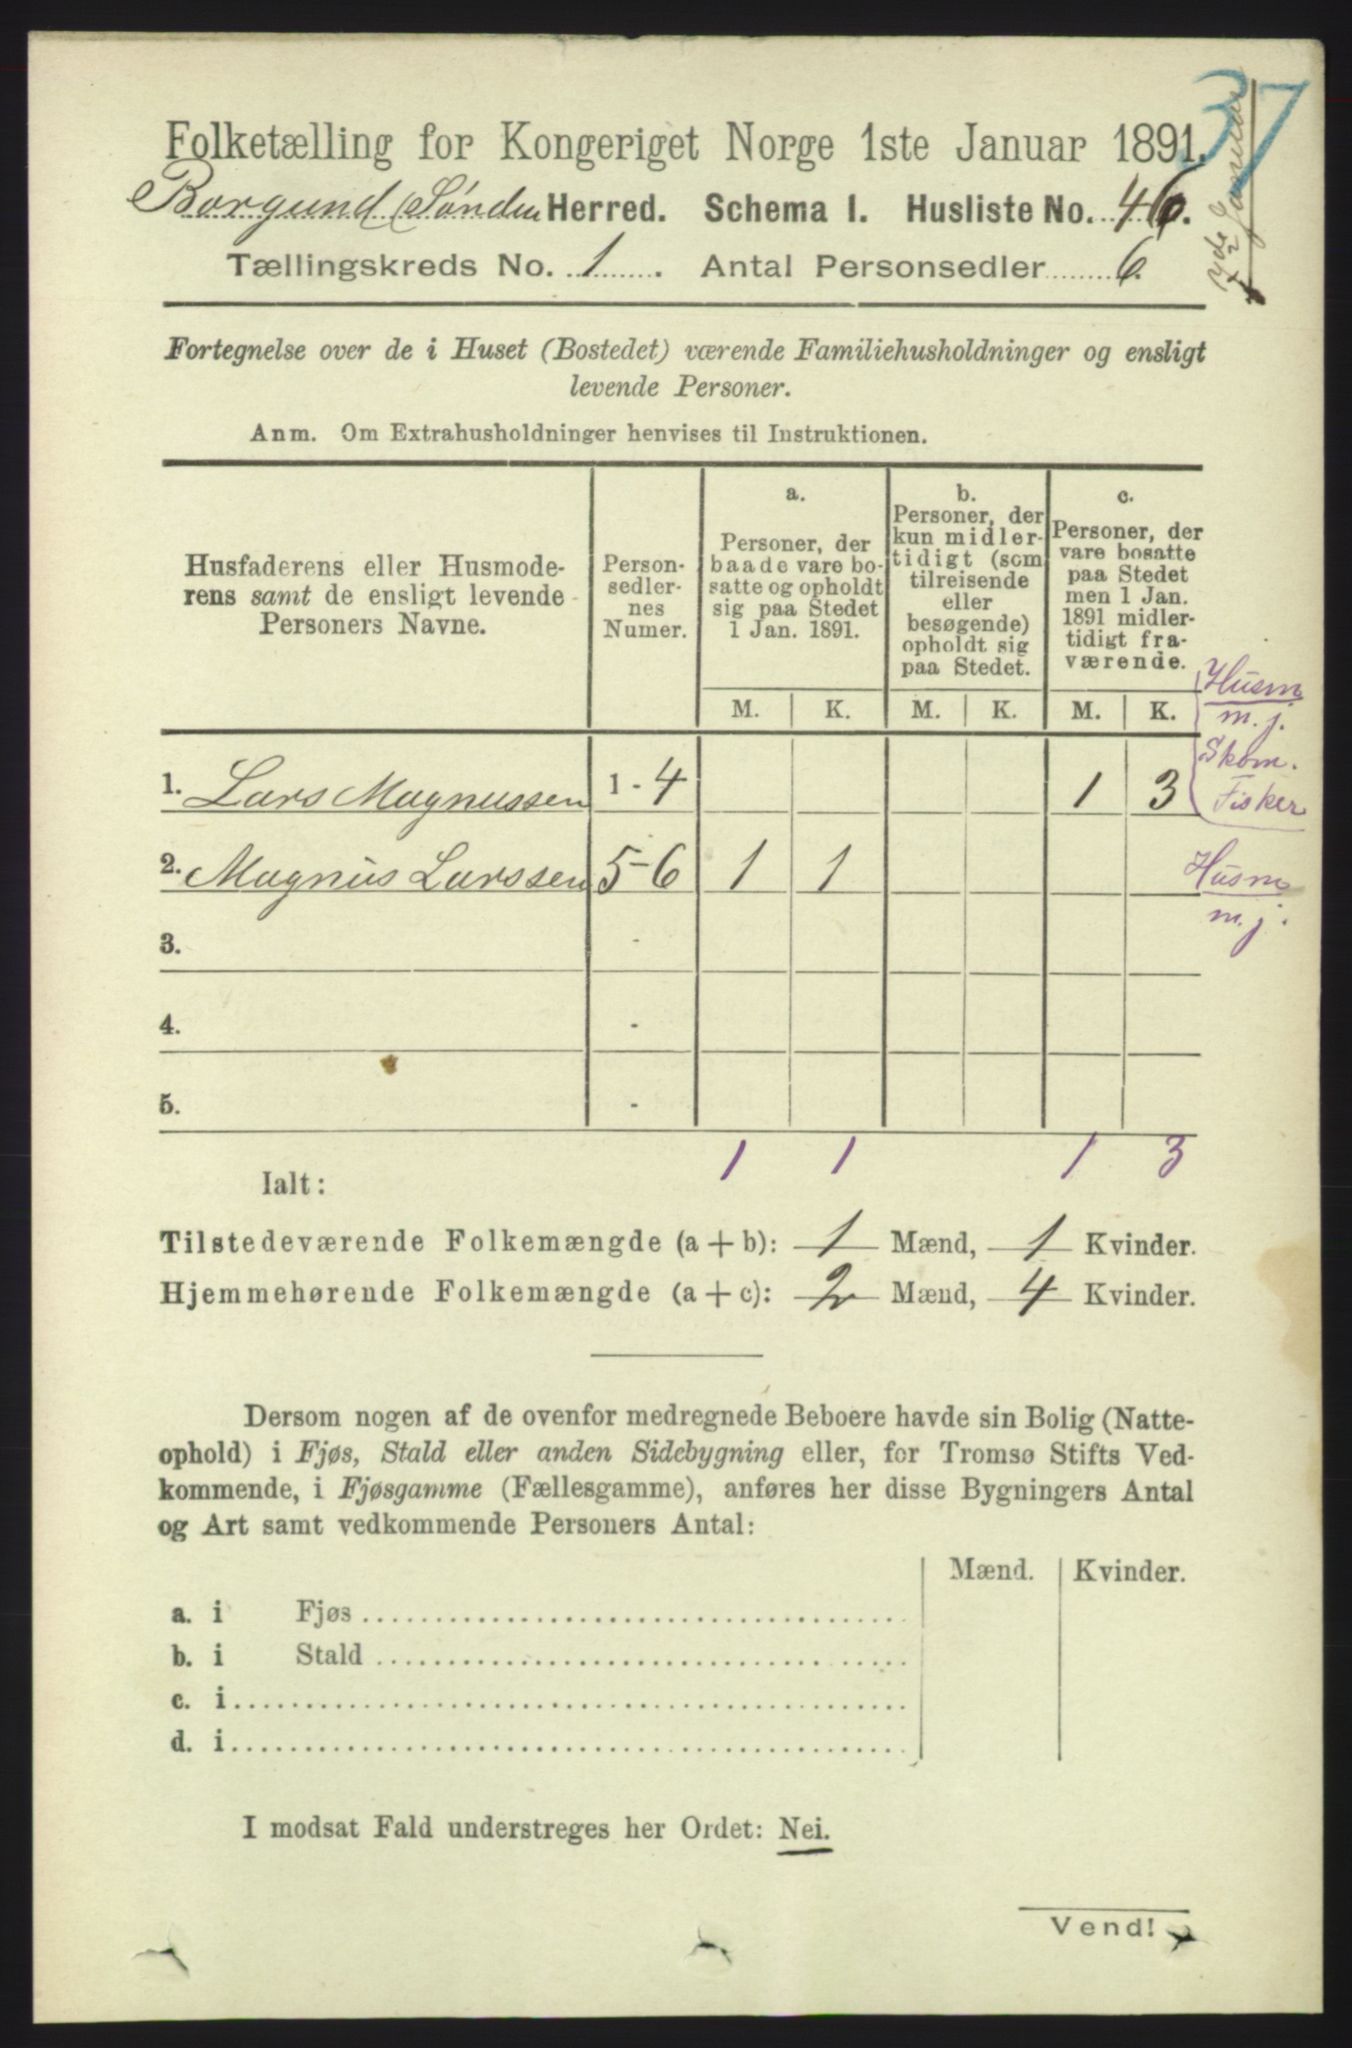 37
Folketælling for Kongeriget Norge 1ste Januar 1891.
Borgund (Sønden Herred. Schema I. Husliste No. 46.
Tællingskreds No. 1. Antal Personsedler 6.
Fortegnelse over de i Huset (Bostedet) værende Familiehusholdninger og ensligt
levende Personer.
Anm. Om Extrahusholdninger henvises til Instruktionen.
Husfaderens eller Husmode-
rens samt de ensligt levende
Personers Navne.
Person-
sedler-
nes
Numer.
a.
Personer, der
baade vare bo-
satte og opholdt
sig paa Stedet
1 Jan. 1891.
b.
Personer, der
kun midler-
tidigt (som
tilreisende
eller
besøgende)
opholdt sig
paa Stedet.
c.
Personer, der
vare bosatte
paa Stedet
men 1 Jan.
1891 midler-
tidigt fra-
værende.
M. K. M. K. M. K.
1. Lars Magnussen 1 - 4 1 3
Husm
m. j.
Skom.
Fisker
2. Magnus Larssen 5-6 1 1
Husm
m. j.
3. -
4. -
5. -
Ialt: 1 1 1 3
Tilstedeværende Folkemængde (a + b): 1 Mænd, 1 Kvinder.
Hjemmehørende Folkemængde (a + c): 2 Mænd, 4 Kvinder.
Dersom nogen af de ovenfor medregnede Beboere havde sin Bolig (Natte-
ophold) i Fjøs, Stald eller anden Sidebygning eller, for Tromsø Stifts Ved-
kommende, i Fjøsgamme (Fællesgamme), anføres her disse Bygningers Antal
og Art samt vedkommende Personers Antal:
Mænd. Kvinder.
a. i Fjøs
b. i Stald
c. i
d. i
I modsat Fald understreges her Ordet: Nei.
Vend!